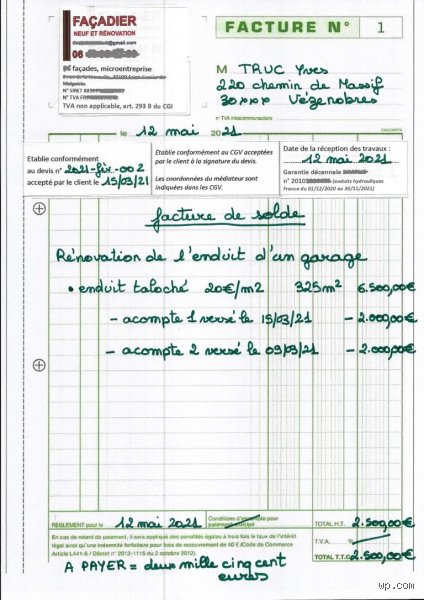 FAÇADIER
NEUF ET RÉNOVATION
@gmail.com
06
façades, microentreprise
N° SIRET
N° TVA FR
TVA non applicable, art. 293 B du CGI
FACTURE N° 1
M TRUC Yves
220 chemin de Massif
30××× Vézenobres
N° TVA intracommunautaire
le 12 mai 2021
EXACOMPTA
Etablie conformément
au devis n° 2021-fév-002
accepté par le client le 15/03/21
Etablie conformément au CGV acceptées
par le client à la signature du devis.
Les coordonnées du médiateur sont
indiquées dans les CGV.
Date de la réception des travaux :
12 mai 2021
Garantie décennale
n° 20101 (enduits hydrauliques
France du 01/12/2020 au 30/11/2021)
facture de solde
Rénovation de l'enduit d'un garage
• enduit taloché 20€/m2 325m² 6.500,00€
- acompte 1 versé le 15/03/21 - 2.000,00€
- acompte 2 versé le 09/03/21 - 2.000,00€
RÈGLEMENT pour le 12 mai 2021
Conditions d'escompte pour
paiement anticipé
TOTAL H.T. 2.500,00€
T.V.A. %
TOTAL T.T.C. 2.500,00€
En cas de retard de paiement, il sera appliqué des pénalités égales à trois fois le taux de l'intérêt
légal ainsi qu'une indemnité forfaitaire pour frais de recouvrement de 40 € (Code de Commerce
Article L441-6 / Décret n° 2012-1115 du 2 octobre 2012).
A PAYER = deux mille cinq cent
euros
wp.com